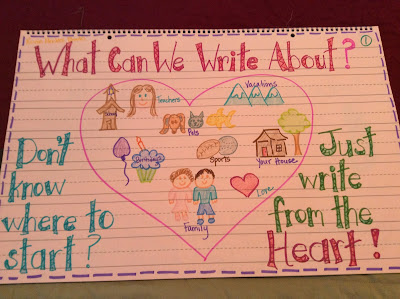 What Can We Write About?
1
Teachers
Vacations
School
Pets
Birthdays
Sports
Your House
Love
Family
Don't
know
where to
start?
Just
write
from the
Heart!